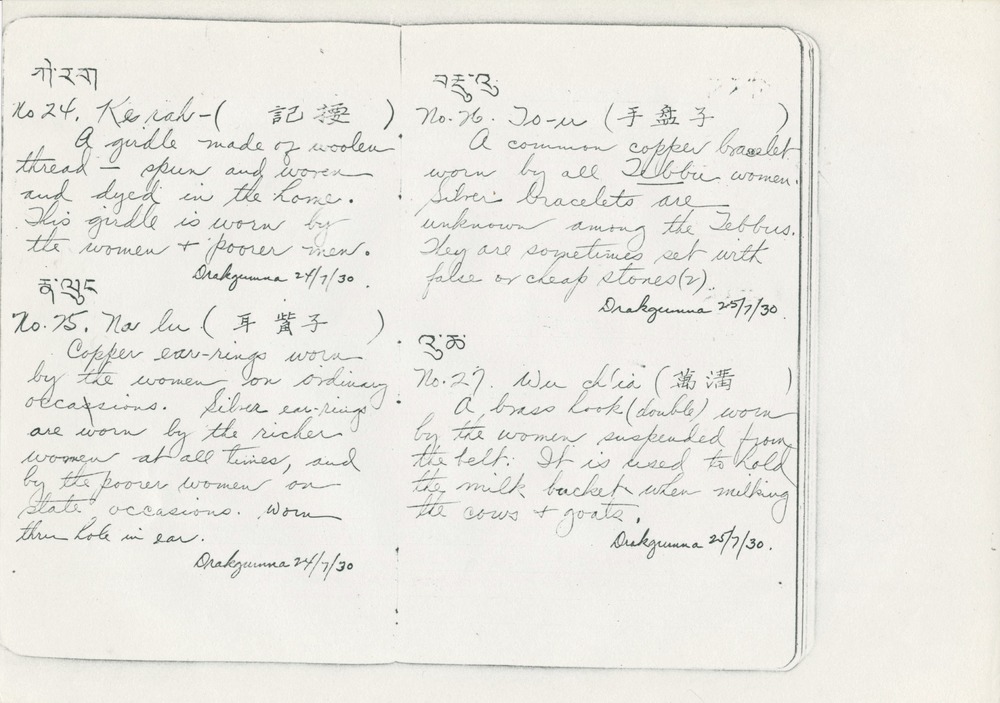 ཀེ་ར་ག
No 24. Kes rah - ( 記 )
A girdle made of woolen
thread — spun and woven
and dyed in the home.
This girdle is worn by
the women + poorer men.
Drakgumna 24/7/30.
ན་ལུང
No. 25. Na lu ( 耳 觜 子 )
Copper ear-rings worn
by the women on ordinary
occasions. Silver ear-rings
are worn by the richer
women at all times, and
by the poorer women on
state occasions. Worn
thru hole in ear.
Drakgumna 24/7/30
No. 26. To-u ( 手 盘 子 )
A common copper bracelet
worn by all Tebbu women.
Silver bracelets are
unknown among the Tebbus.
They are sometimes set with
false or cheap stones (2).
Drakgumna 25/7/30.
No. 27. Wu ch'ia ( )
A brass hook (double) worn
by the women suspended from
the belt. It is used to hold
the milk bucket when milking
the cows + goats.
Drakgumna 25/7/30.